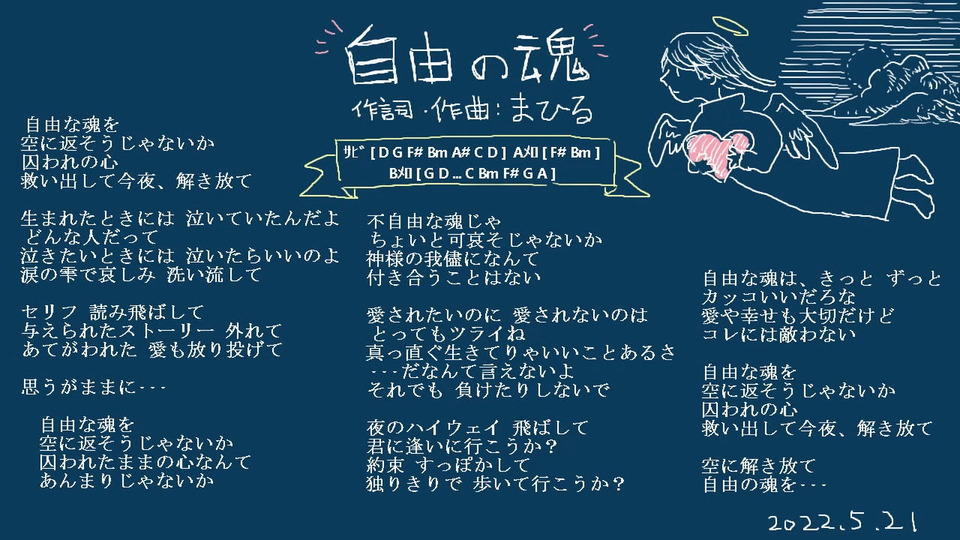 自由の魂
作詞・作曲：まひる
ｻﾋﾞ [ D G F# Bm A# C D ] Aﾒﾛ [ F# Bm ]
Bﾒﾛ [ G D ... C Bm F# G A ]
自由な魂を
空に返そうじゃないか
囚われの心
救い出して今夜、解き放て
生まれたときには 泣いていたんだよ
どんな人だって
泣きたいときには 泣いたらいいのよ
涙の雫で哀しみ 洗い流して
セリフ 読み飛ばして
与えられたストーリー 外れて
あてがわれた 愛も放り投げて
思うがままに･･･
自由な魂を
空に返そうじゃないか
囚われたままの心なんて
あんまりじゃないか
不自由な魂じゃ
ちょいと可哀そじゃないか
神様の我儘になんて
付き合うことはない
愛されたいのに 愛されないのは
とってもツライね
真っ直ぐ生きてりゃいいことあるさ
･･･だなんて言えないよ
それでも 負けたりしないで
夜のハイウェイ 飛ばして
君に逢いに行こうか？
約束 すっぽかして
独りきりで 歩いて行こうか？
自由な魂は、きっと ずっと
カッコいいだろな
愛や幸せも大切だけど
コレには敵わない
自由な魂を
空に返そうじゃないか
囚われの心
救い出して今夜、解き放て
空に解き放て
自由の魂を･･･
2022.5.21